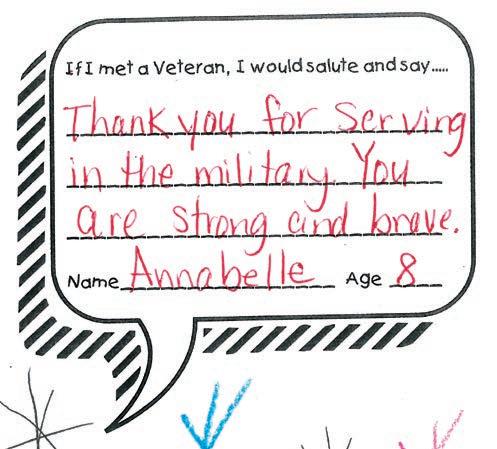 If I met a Veteran, I would salute and say.....
Thank you for Serving
in the military. You
are strong and brave.
Name Annabelle Age 8